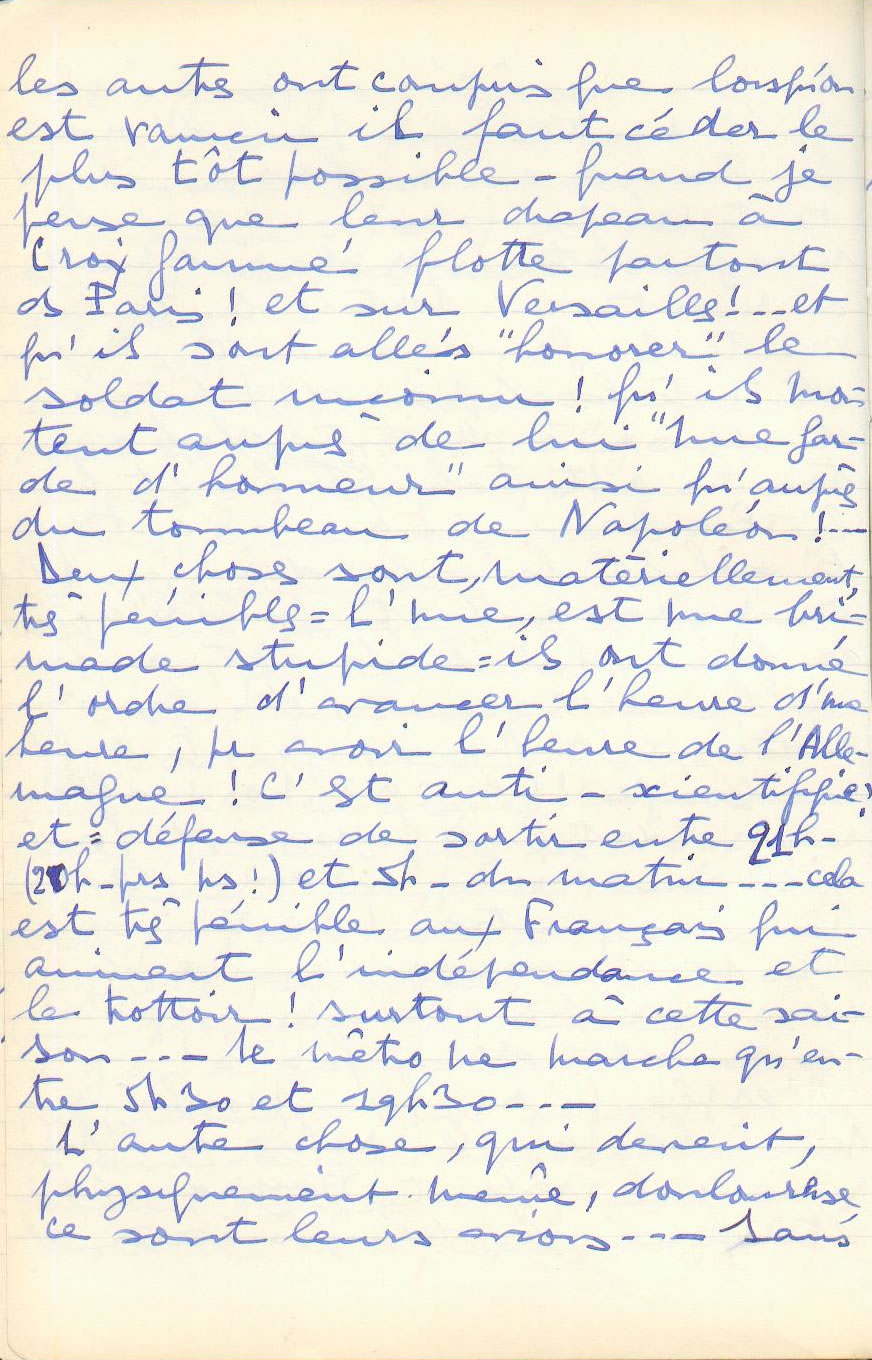 les autres ont compris que lorsqu'on
est vaincu il faut céder le
plus tôt possible - quand je
pense que leur drapeau à
Croix gammée flotte partout
ds Paris ! et sur Versailles ! --- et
qu'ils sont allés "honorer" le
soldat inconnu ! qu'ils mon-
tent auprès de lui "une gar-
de d'honneur" ainsi qu'auprès
du tombeau de Napoléon ! ---
Deux choses sont, matériellement,
très pénibles = l'une, est une bri-
made stupide = ils ont donné
l'ordre d'avancer l'heure d'une
heure, pr avoir l'heure de l'Alle-
magne ! C'est anti-scientifique !
et = défense de sortir entre 21h-
(20h- prs ns !) et 5h- du matin --- cela
est très pénible aux Français qui
aiment l'indépendance et
le trottoir ! surtout à cette sai-
son --- le métro ne marche qu'en-
tre 5h30 et 19h30 ---
L'autre chose, qui devient,
physiquement même, douloureuse
ce sont leurs avions --- Sans